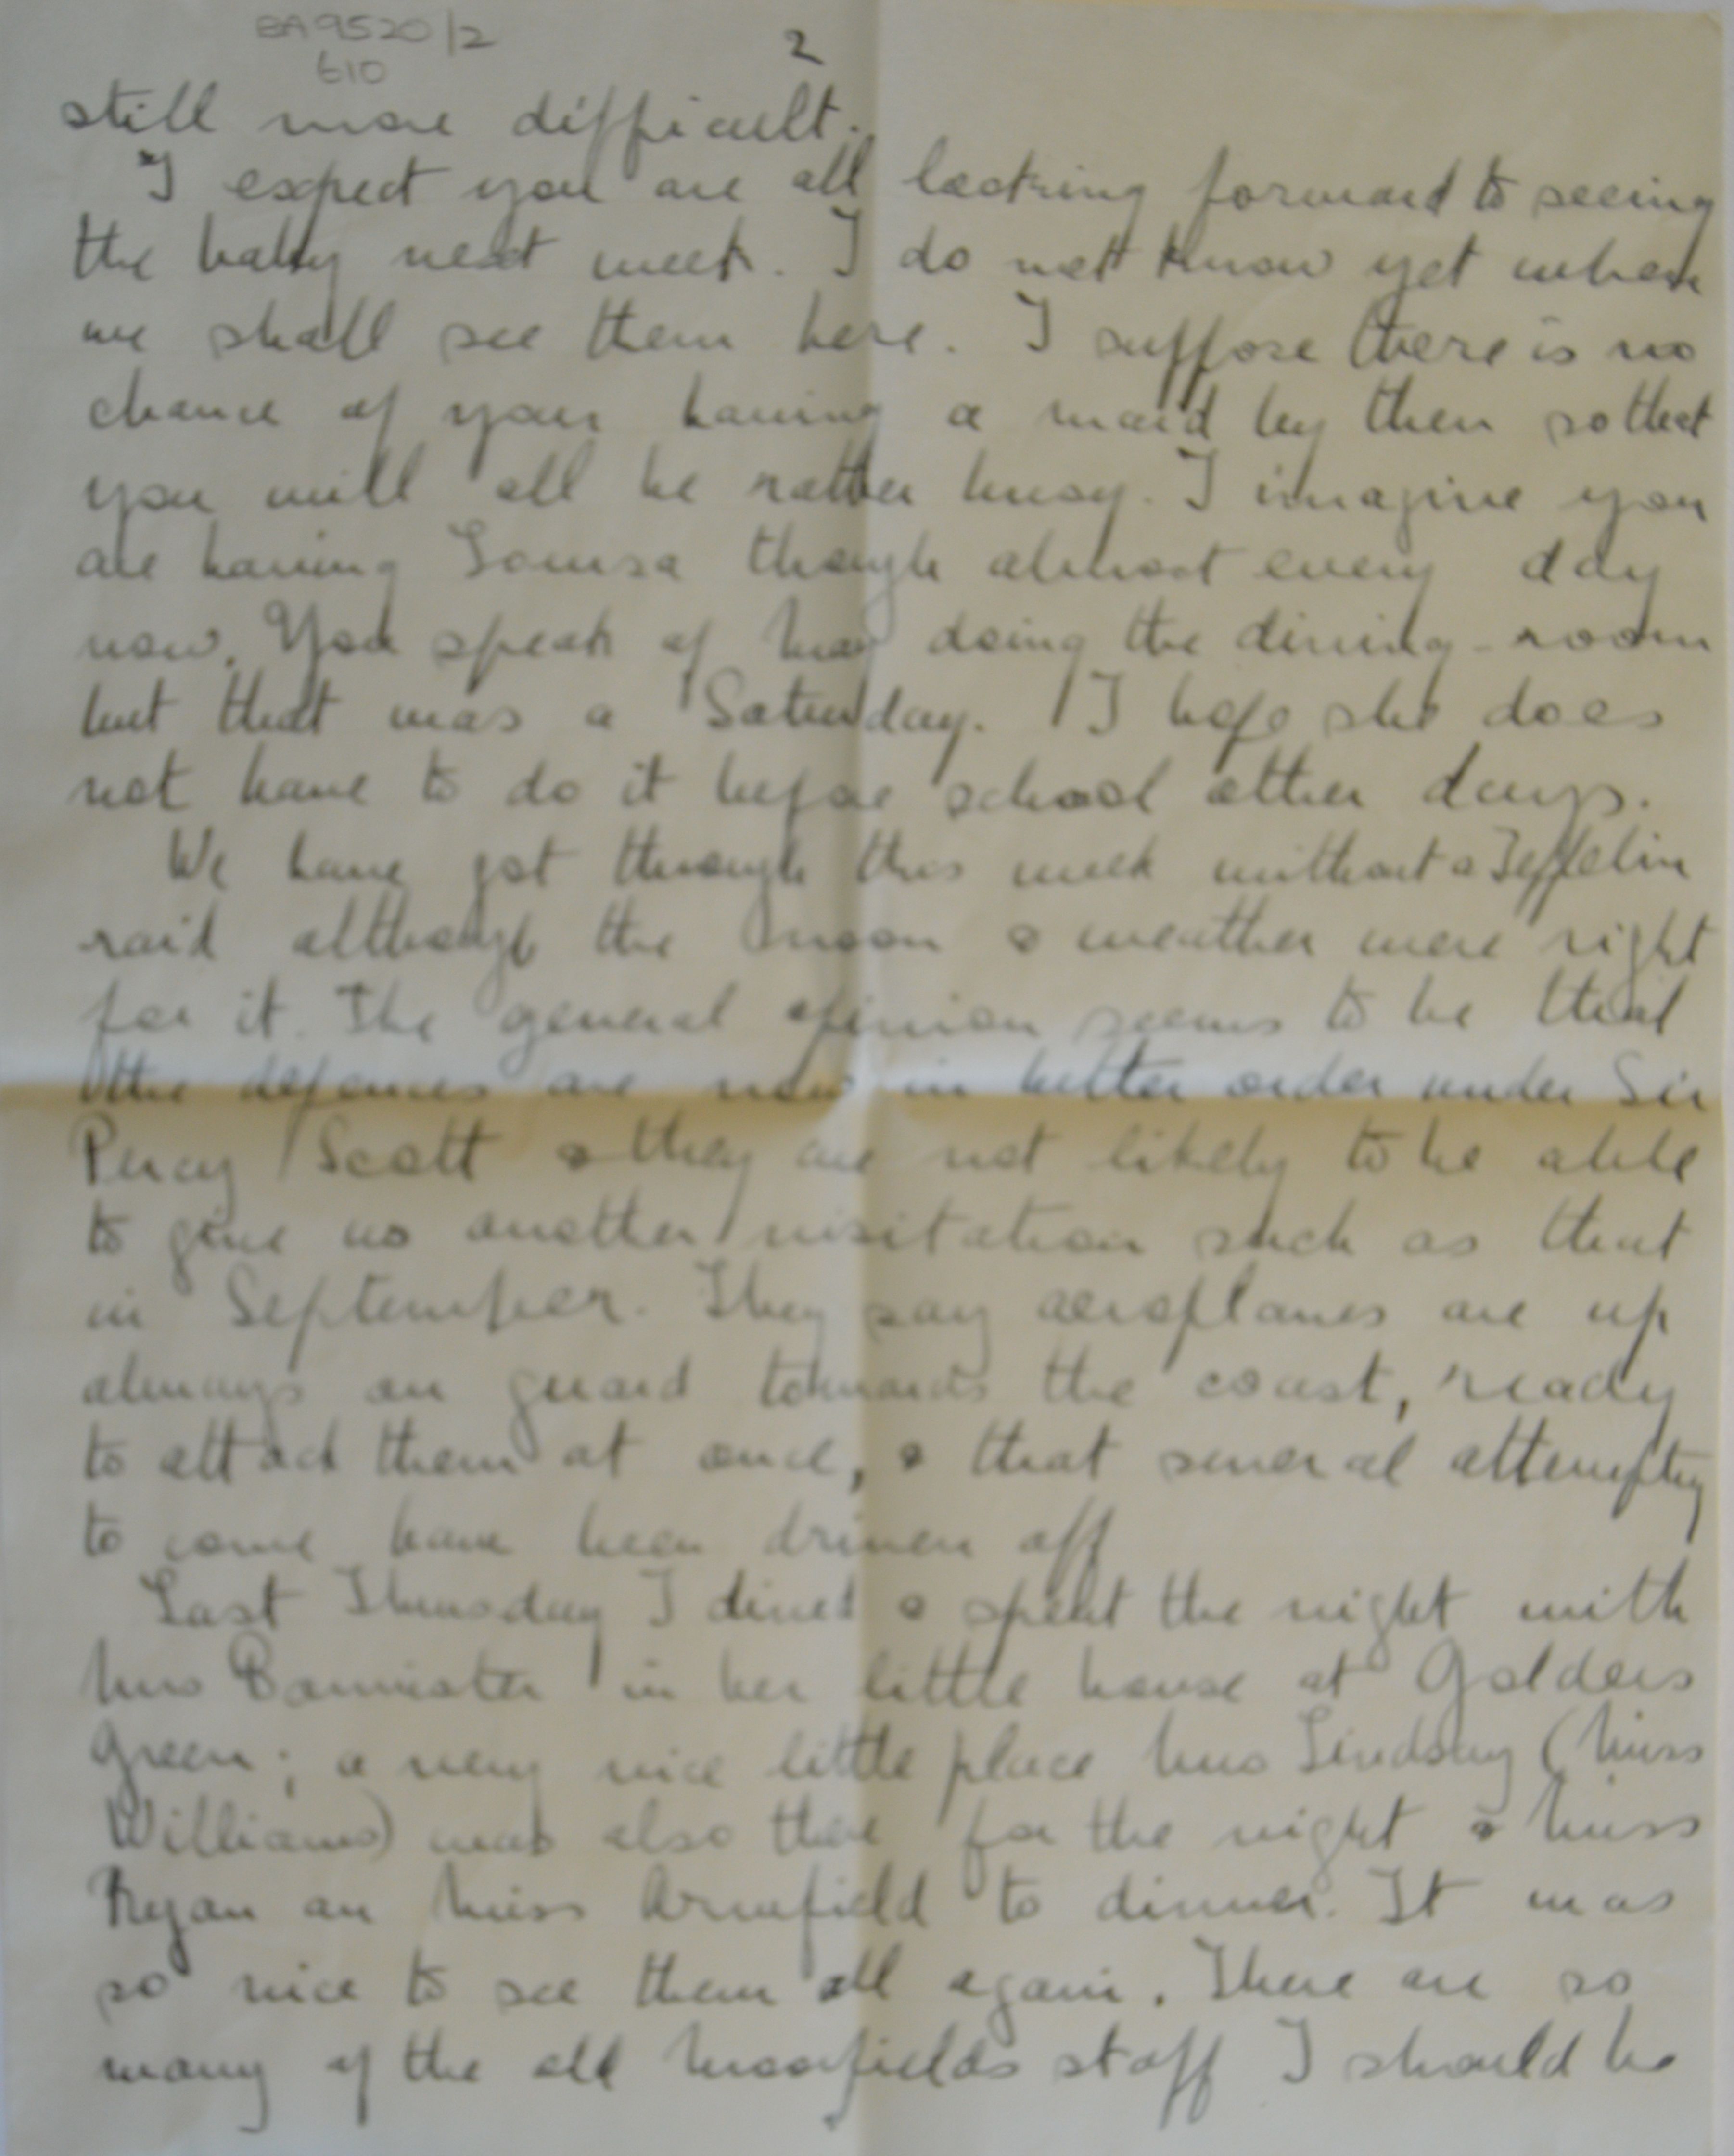 BA9520/2
610
2
still more difficult.
I expect you are all looking forward to seeing
the baby next week. I do not know yet when
we shall see them here. I suppose there is no
chance of your having a maid by then so that
you will all be rather busy. I imagine you
are having Louisa though almost every day
now. You speak of May doing the dining-room
but that was a Saturday. I hope she does
not have to do it before school other days.
We have got through this week without a Zeppelin
raid although the moon & weather were right
for it. The general opinion seems to be that
the defences are now in better order under Sir
Percy Scott & they are not likely to be able
to give us another visitation such as that
in September. They say aeroplanes are up
always on guard towards the coast, ready
to attack them at once, & that several attempts
to come have been driven off
Last Thursday I dined & spent the night with
Mrs Bannister in her little house at Golders
Green; a very nice little place Mrs Lindsay (Miss
Williams) was also there for the night & Miss
Ryan an Miss to dinner. It was
so nice to see them all again. There are so
many of the old Moorfields staff I should be